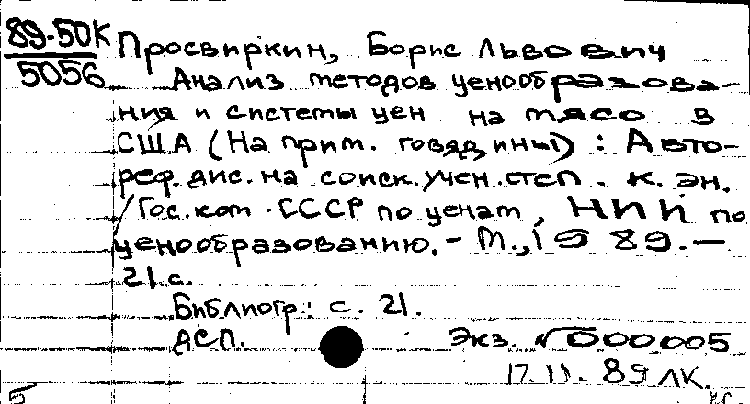 89-50К
5056
Просвиркин, Борис Львович
Анализ методов ценообразова-
ния и системы цен на мясо в
США (На прим. говядины) : Авто-
реф. дис. на соиск. учен. степ. к. эн.
/ Гос. ком. СССР по ценам, НИИ по
ценообразованию. - М., 1989. -
21 с.
Библиогр: с. 21.
ДСП.
Экз. №000005
17.11.89 ЛК.
5